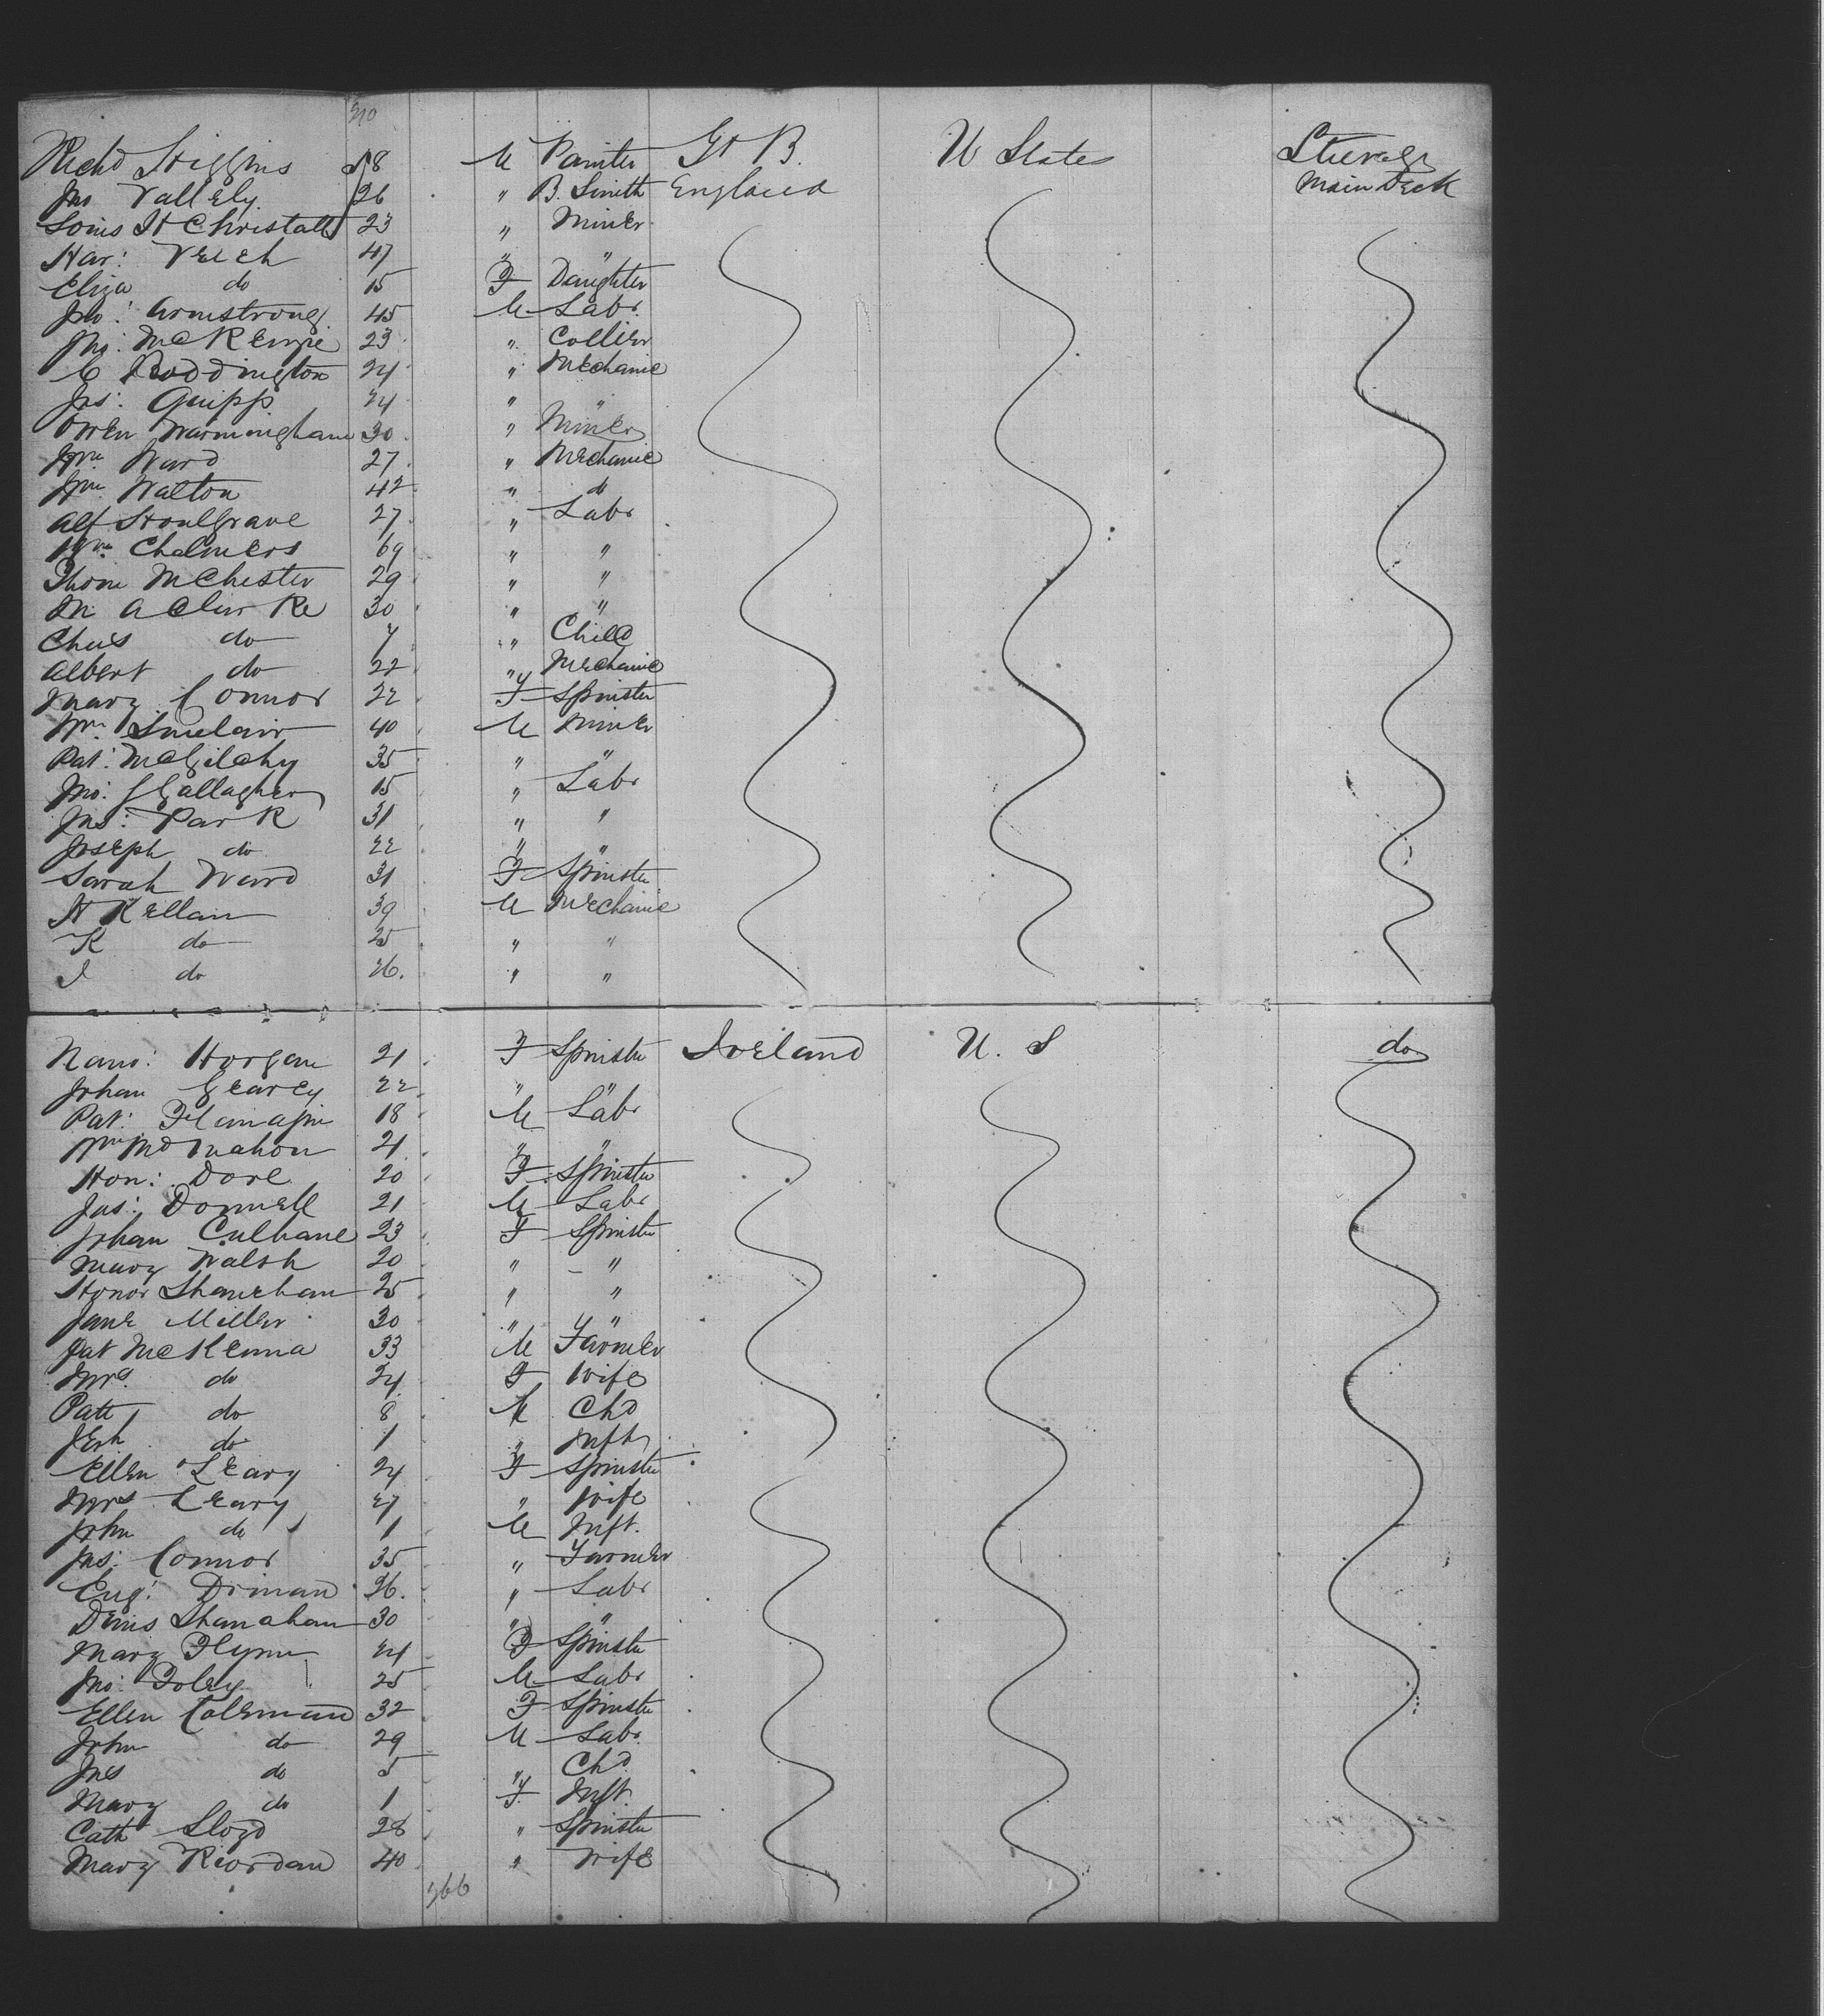 210
Richd Higgins 58 M Painter Gt B. U States Steerage
Jno Vallely 26 " B. Smith England Main Deck
Louis St Christall 23 " Miner
Har: Veich 47 " "
Eliza do 15 F Daughter
Jno: Armstrong 45 M Labr
Jno: McKenzie 23 " Collier
C Boddington 24 " Mechanic
Jas: Quipp 24 " "
Owen Warmingham 30 " Miner
Wm Ward 27 " Mechanic
Wm Walton 42 " do
Alf Houlgrave 27 " Labr
Wm Chalmers 69 " "
Thom McChester 29 " "
M A Clarke 30 " "
Chas do 7 " Child
Albert do 22 " Mechanic
Mary Connor 22 F Spinster
Wm Sinclair 40 M Miner
Pat: McGilchy 35 " "
Jno: Gallagher 15 " Labr
Jas: Park 31 " "
Joseph do 22 " "
Sarah Ward 31 F Spinster
H Kellam 39 M Mechanic
K do 25 " "
J do 26. " "
Hano: Horgan 21 F Spinster Ireland U. S do
Johan Gearey 22 " "
Pat: Flanagin 18 M Labr
Wm McMahon 21 " "
Hon: Dore 20 F Spinster
Jas: Donnell 21 M Labr
Johan Culhane 23 F Spinster
Mary Walsh 20 " "
Honor Shanehan 25 " "
Jane Miller 30 " "
Pat McKenna 33 M Farmer
Mrs do 24 F Wife
Patt do 8 M Chd
Jerh do 1 " Inft
Ellen Leary 24 F Spinster
Mrs Leary 27 " Wife
John do 1 M Inft.
Jas: Connor 35 " Farmer
Eug: Drinan 26. " Labr
Denis Shanahan 30 " "
Mary Flynn 24 F Spinster
Jno: Foley 25 M Labr
Ellen Coleman 32 F Spinster
John do 29 M Labr
Jas do 5 " Chd
Mary do 1 F Inft.
Cath Lloyd 28 " Spinster
Mary Riordan 40 " Wife
266